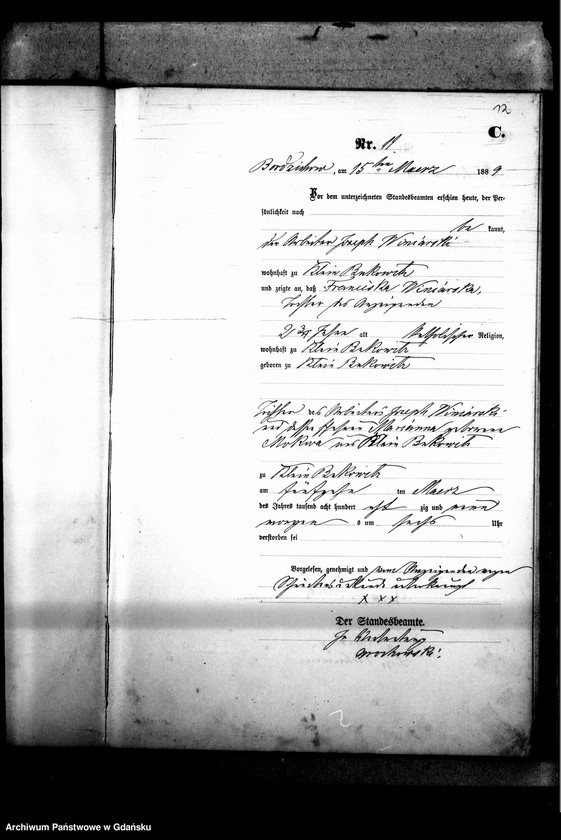 12
C.
Nr. 11
Bordzichow, am 15ten Maerz 1889
Vor dem unterzeichneten Standesbeamten erschien heute, der Per-
sönlichkeit nach
be kannt,
der Arbeiter Joseph Winiarski
wohnhaft zu Klein Bukowitz
und zeigte an, daß Franciska Winiarska,
Tochter des Anzeigenden
2 3/4 Jahre alt katholischer Religion,
wohnhaft zu Klein Bukowitz
geboren zu Klein Bukowitz
Tochter des Arbeiters Joseph Winiarski
und dessen Ehefrau Marianna geborene
Mokwa aus Klein Bukowitz
zu Klein Bukowitz
am fünfzehn ten Maerz
des Jahres tausend acht hundert acht zig und neun
morgen s um sechs Uhr
verstorben sei
Vorgelesen, genehmigt und vom Anzeigenden wegen
Schreibensunkunde unterkreuzt
x x x
Der Standesbeamte.
Archiwum Państwowe w Gdańsku